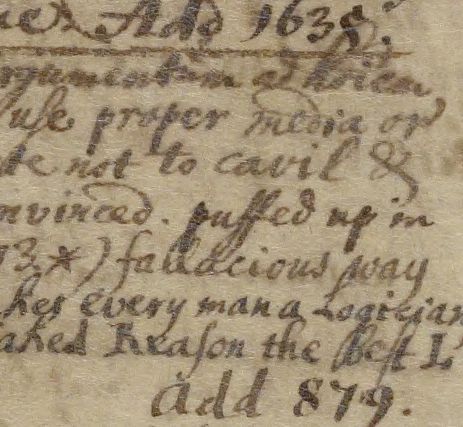 Add 1638.
argumentum ad hoiem
use proper media or
not to cavil &
nvinced. puffed up in
13*) fallacious way
her every man a Logician
aked Reason the Best L
Add 879.